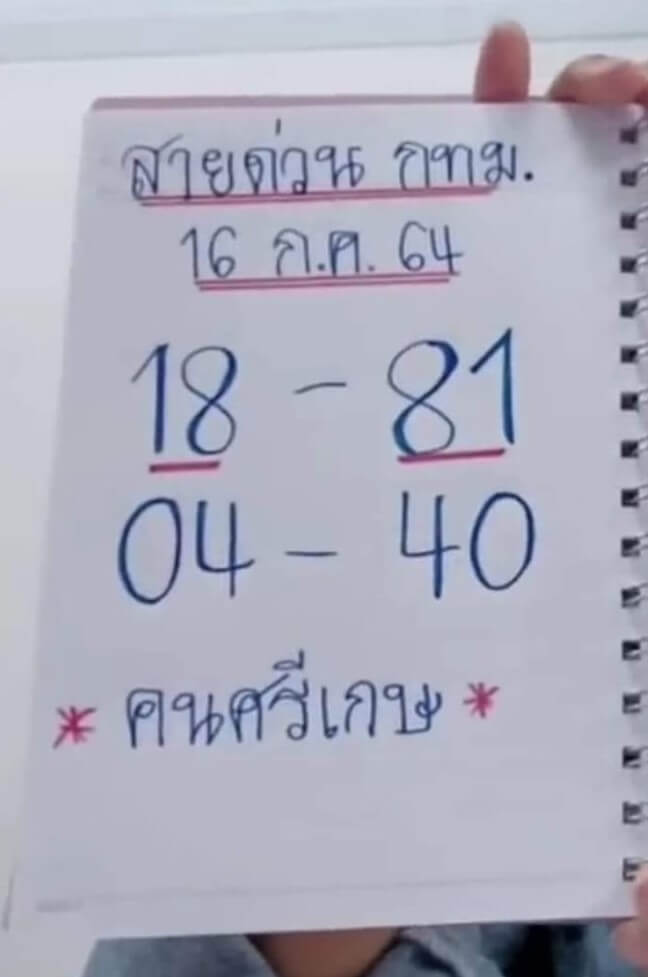 สายด่วน กทม.
16 ก.ค. 64
18 - 81
04 - 40
* คนศรีเกษ *